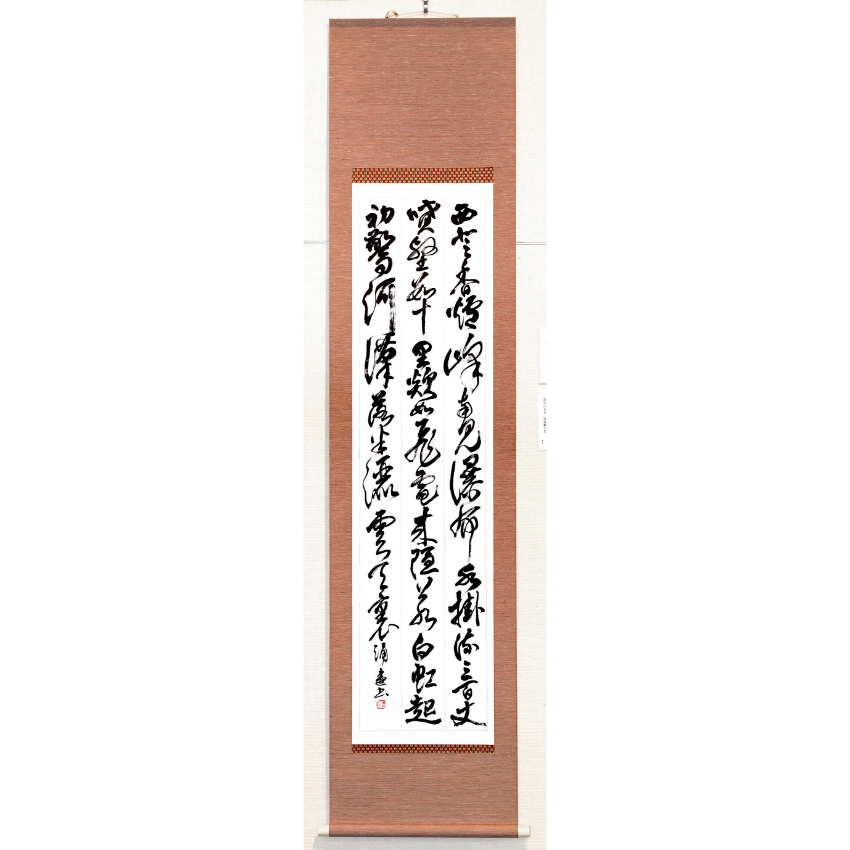 西登香爐峰南見瀑布水掛流三百丈
噴壑數十里欻如飛電來隱若白虹起
初驚河漢落半灑雲天裏